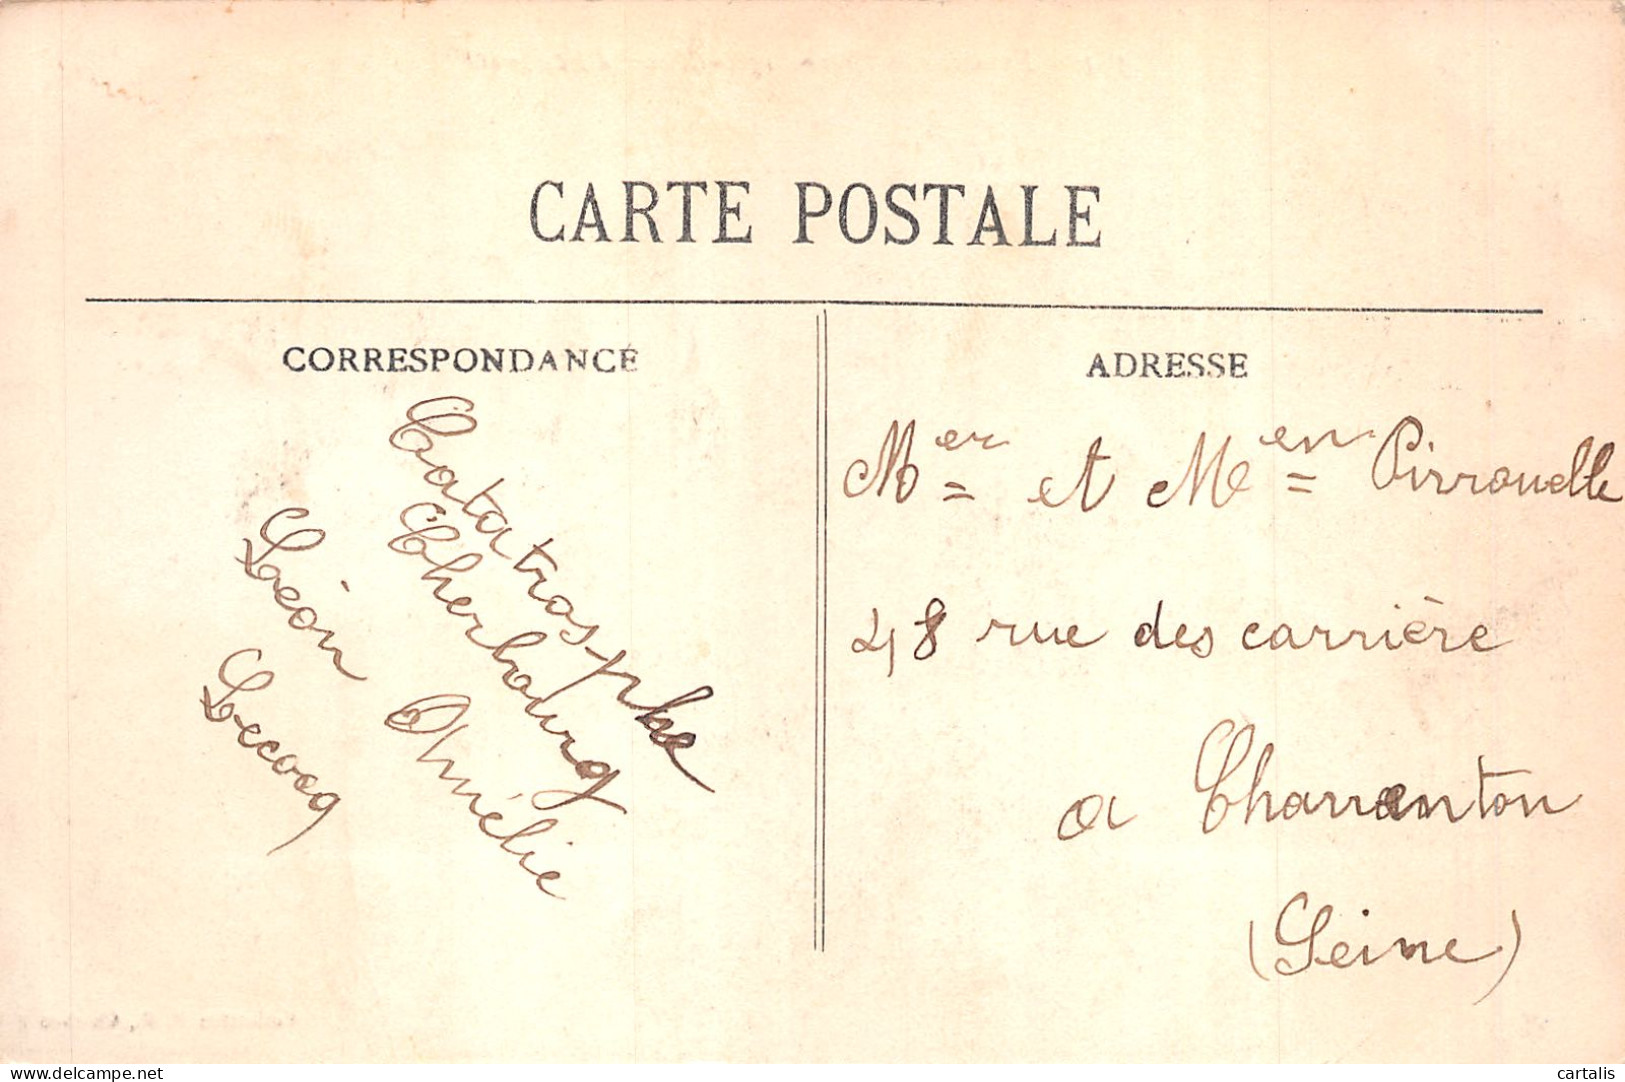 CARTE POSTALE
CORRESPONDANCE
Catatrosphe
Cherbourg
Léon Omélie
Lecocq
ADRESSE
Mer et Men Pirrouelle
48 rue des carrière
a Charranton
(Seine)
www.delcampe.net
cartalis